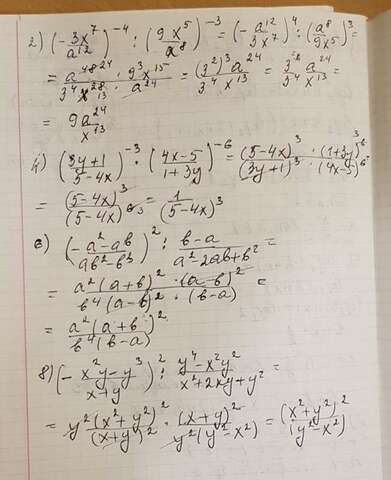 2) (-3x⁷/a¹²)⁻⁴ : (9x⁵/a⁸)⁻³ = (-a¹²/3x⁷)⁴ : (a⁸/9x⁵)³ =
= a⁴⁸ ²⁴ · 9³x¹⁵ / 3⁴ x²⁸ ¹³ · a²⁴ = (3²)³a²⁴/3⁴x¹³ = 3⁶ ² a²⁴/3⁴x¹³ =
= 9a²⁴/x¹³
4) (3y+1/5-4x)⁻³ · (4x-5/1+3y)⁻⁶ = (5-4x)³ · (1+3y)⁶ ³/(3y+1)³ · (4x-5)⁶
= (5-4x)³/(5-4x)⁶ ³ = 1/(5-4x)³
6) (-a²-ab/ab²-b³)² : b-a/a²-2ab+b² =
= a²(a+b)² · (a-b)²/b⁴(a-b)² · (b-a) =
= a²(a+b)²/b⁴(b-a)
8) (-x²y-y³/x+y)² : y⁴-x²y²/x²+2xy+y² =
= y²(x²+y²)²/(x+y)² · (x+y)²/y²(y²-x²) = (x²+y²)²/(y²-x²)